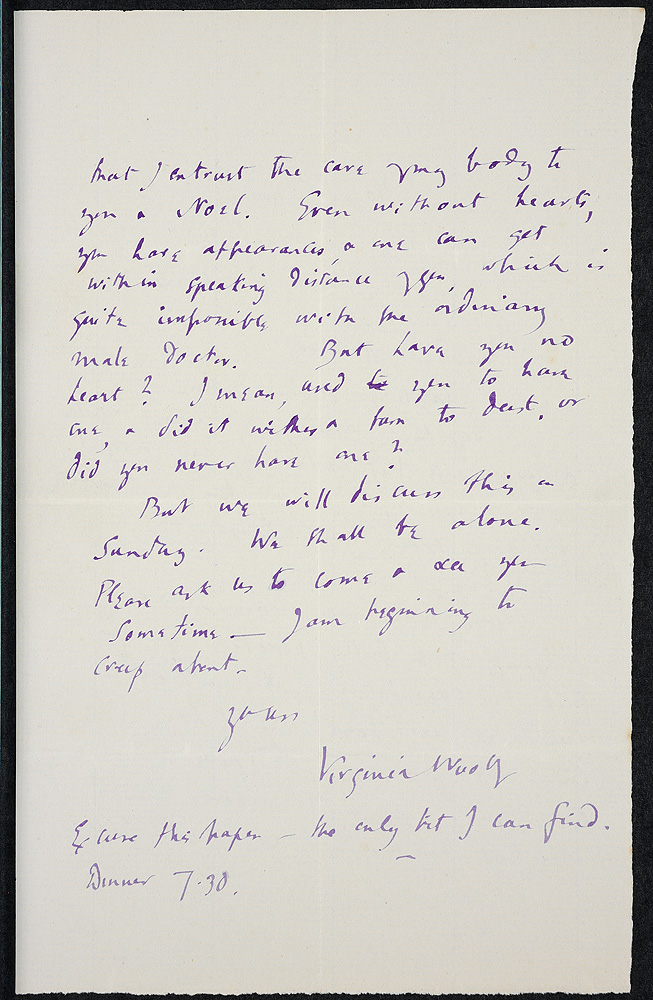 that I entrust the care of my body to
you & Noel. Even without hearts,
you have appearances, & one can get
within speaking distance of you, which is
quite impossible with the ordinary
male doctor. But have you no
heart? I mean, used to you to have
one, & did it wither & turn to dust, or
did you never have one?
But we will discuss this on
Sunday. We shall be alone.
Please ask us to come & see you
sometime — I am beginning to
creep about.
Yours
Virginia Woolf
Excuse this paper — the only bit I can find.
Dinner 7.30.